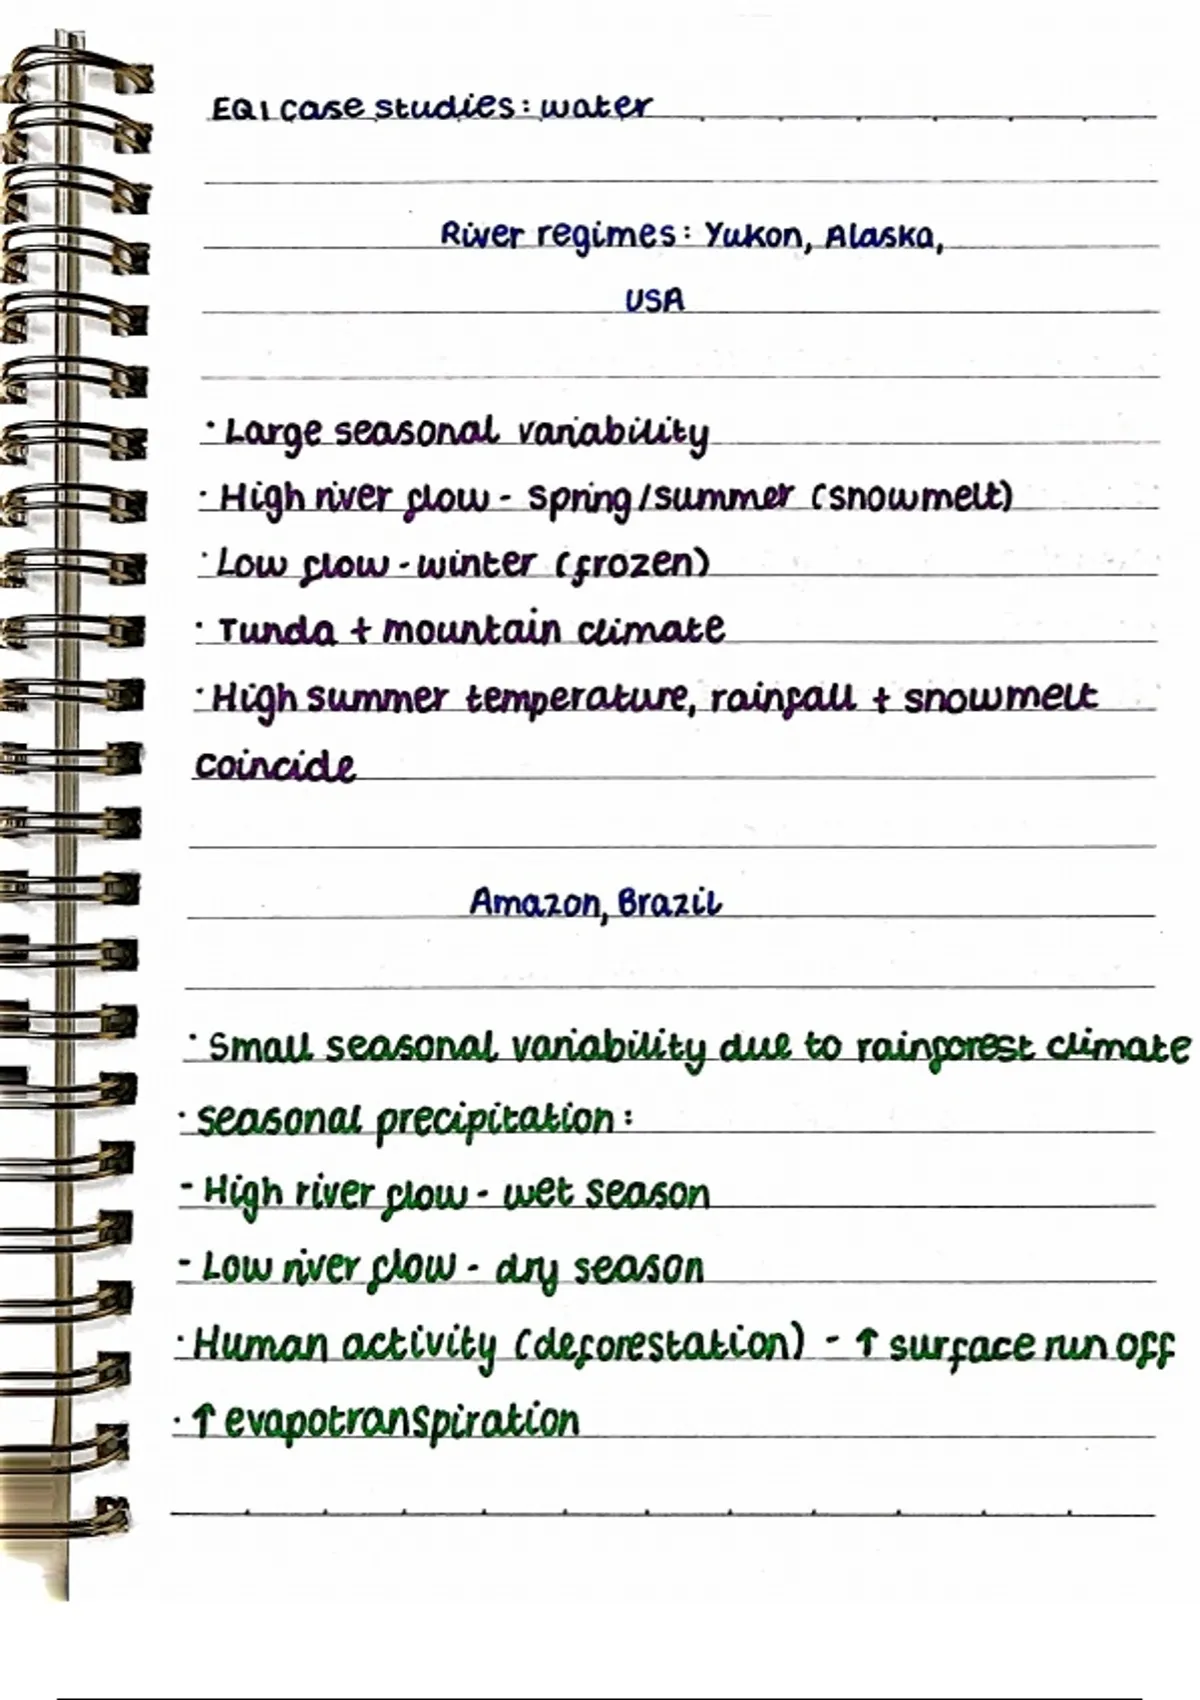 EQ1 case studies: water
River regimes: Yukon, Alaska,
USA
· Large seasonal variability
· High river flow - spring/summer (snowmelt)
· Low flow - winter (frozen)
· Tunda + mountain climate
· High summer temperature, rainfall + snowmelt
coincide
Amazon, Brazil
· Small seasonal variability due to rainforest climate
· seasonal precipitation:
- High river flow - wet season
- Low river flow - dry season
· Human activity (deforestation) - ↑ surface run off
· ↑ evapotranspiration